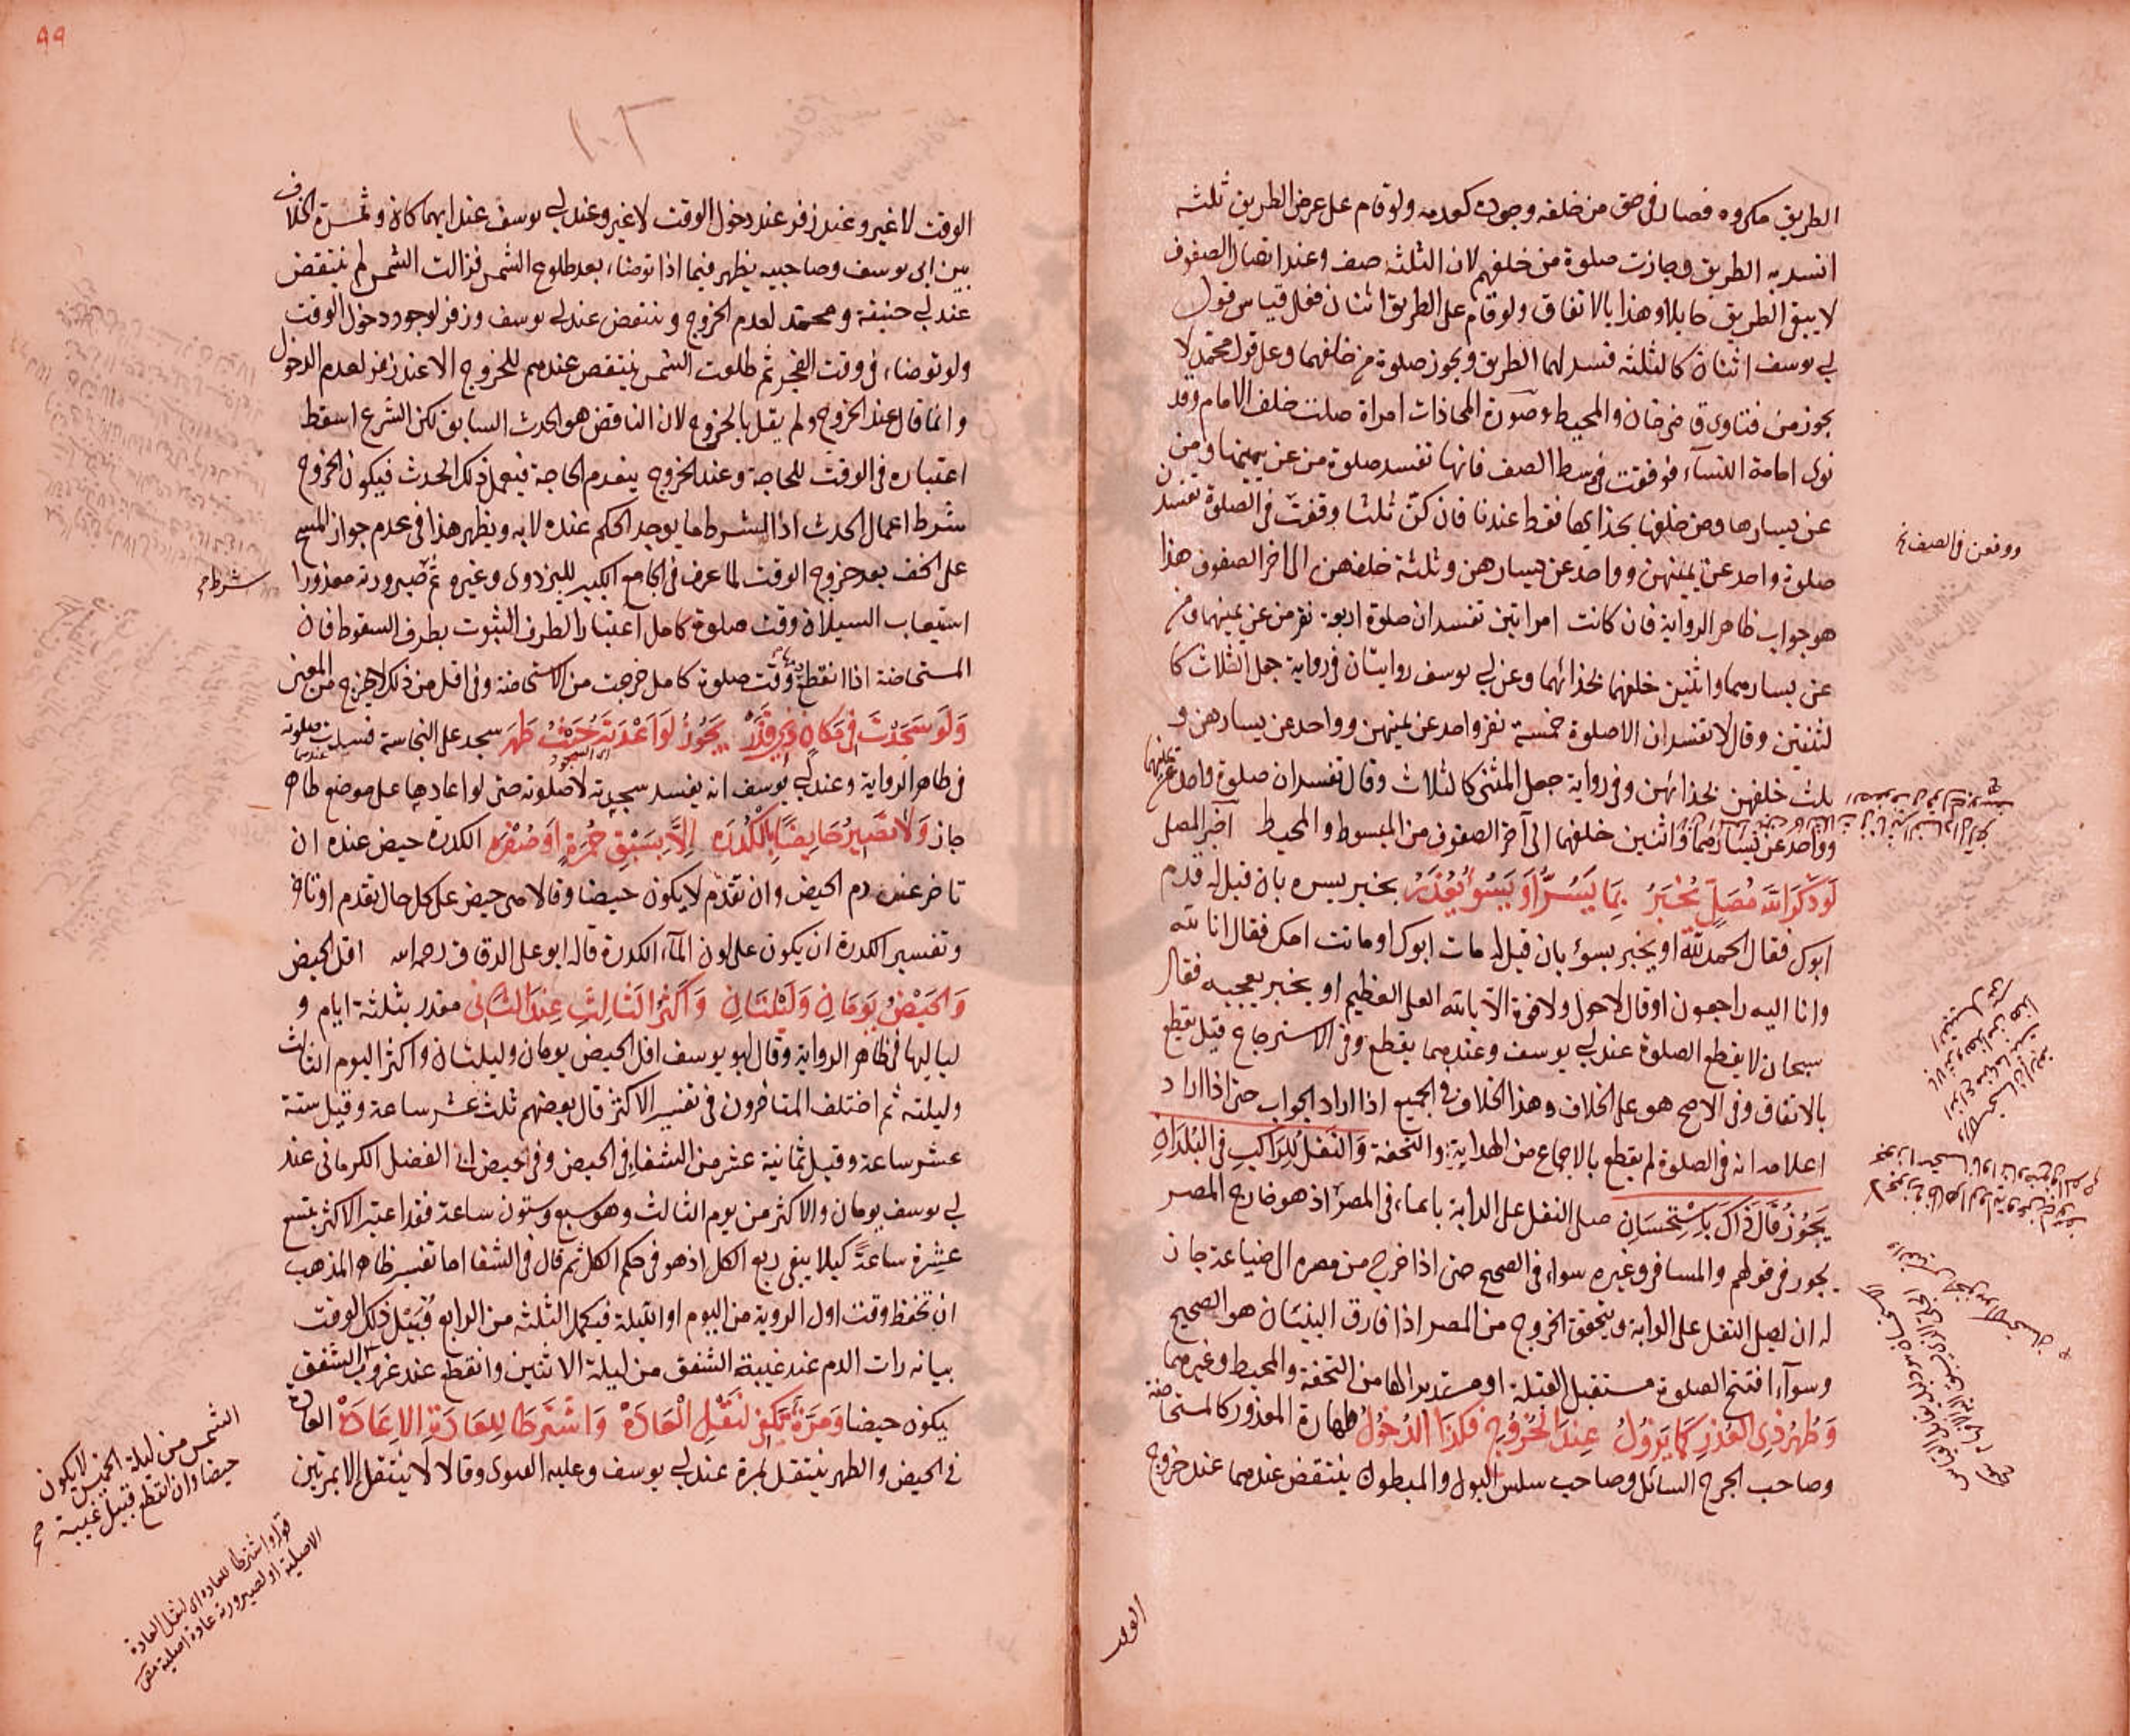 الطريق مكروه فصار في حق من خلفه وجوده كعدمه ولو قام على عرض الطريق ثلثة
انسد به الطريق وجازت صلوة من خلفهم لان الثلثة صف وعند اتصال الصفوف
لا يبقى الطريق حايلا وهذا بالاتفاق ولو قام على الطريق اثنان فعلى قياس قول
ابي يوسف اثنان كالثلثة فسد لهما الطريق ويجوز صلوة من خلفهما وعلى قول محمد لا
يجوز من فتاوى قاضى خان والمحيط وصورة المحاذات امراة صلت خلف الامام وقد
نوى امامة النساء فوقفت في وسط الصف فانها تفسد صلوة من عن يمينها ومن
عن يسارها ومن خلفها بحذايها فقط عندنا فان كن ثلثا وقفت في الصلوة تفسدن
صلوة واحد عن يمينهن وواحد عن يسارهن وثلثة خلفهن الى اخر الصفوف هذا
هو جواب ظاهر الرواية فان كانت امراتين تفسدان صلوة اربعة نفر من عن يمينهما ومن
عن يسارهما واثنين خلفهما بحذائهما وعن ابي يوسف روايتان في رواية جعل الثلاث كا
لثنتين وقال لا تفسدان الا صلوة خمسة نفر واحد عن يمينهن وواحد عن يسارهن و
ثلث خلفهن بحذائهن وفى رواية جعل المثنى كالثلاث وقال تفسدان صلوة واحد عن يمينهما
وواحد عن يسارهما واثنين خلفهما الى آخر الصفوف من المبسوط والمحيط اخبر المصلى
لَو ذَكَرَ اللّٰه مُصَلٍّ يُخبَرُ بِمَا يَسُرُّ أَو يَسُوءُ يُعْذَرُ بخبر يسره بان قيل له قدم
ابوك فقال الحمد لله او يخبر بسوء بان قيل له مات ابوك او ماتت امك فقال انا لله
وانا اليه راجعون او قال لا حول ولا قوة الا بالله العلى العظيم او بخبر يعجبه فقال
سبحان لا يقطع الصلوة عند ابي يوسف وعندهما يقطع وفى الاسترجاع قيل يقطع
بالاتفاق وفى الاصح هو على الخلاف وهذا الخلاف في الجميع اذا اراد الجواب حتى اذا اراد
اعلامه انه في الصلوة لم يقطع بالاجماع من الهداية والتحفة وَالنَّفلُ لِلرَاكِبِ في البُلدَانِ
يَجُوزُ قَالَ ذَاكَ بِاستِحسَانِ صلى النفل على الدابة بايماء في المصر اذ هو خارج المصر
يجوز في قولهم والمسافر وغيره سواء في الصحيح حتى اذا خرج من مصره الى ضياعة جاز
له ان يصلى النفل على الدابة ويتحقق الخروج من المصر اذا فارق البنيان هو الصحيح
وسواء افتتح الصلوة مستقبل القبلة او مستدبرا لها من التحفة والمحيط وغيرهما
وَطُهْرُ ذِى العُذرِ كَمَا يَزُولُ عِندَ الخُرُوجِ فَكَذَا الدُخُولُ طهارة المعذور كالمستحاضة
وصاحب الجرح السائل وصاحب سلس البول والمبطون ينتقض عندهما عند خروج
الوقت
الوقت لا غير وعند زفر عند دخول الوقت لا غير وعند ابي يوسف عند ايهما كان وثمرة الخلاف
بين ابى يوسف وصاحبيه يظهر فيما اذا توضاء بعد طلوع الشمس فزالت الشمس لم ينتقض
عند ابي حنيفة ومحمد لعدم الخروج وينتقض عند ابي يوسف وزفر لوجود دخول الوقت
ولو توضاء في وقت الفجر ثم طلعت الشمس ينتقض عندهم للخروج الا عند زفر لعدم الدخول
وانما قال عند الخروج ولم يقل بالخروج لان الناقض هو الحدث السابق لكن الشرع اسقط
اعتباره في الوقت للحاجة وعند الخروج ينعدم الحاجة فيعمل ذلك الحدث فيكون الخروج
شرط اعمال الحدث اذ الشرط ما يوجد الحكم عنده لا به ويظهر هذا في عدم جواز المسح
على الخف بعد خروج الوقت لما عرف في الجامع الكبير للبزدوى وغيره ثم صيرورته معذورا
استيعاب السيلان وقت صلوة كامل اعتبارا لطرف الثبوت بطرف السقوط فان
المستحاضة اذا انقطع وقت صلوة كامل خرجت من الاستحاضة وفى اقل من ذلك لا يخرج من المعنى
وَلَو سَجَدْتَ في مَكَانٍ ذِى قَذَرٍ يَجُوزُ لَوَ اَعْدَتَهُ حَيْثُ طَهَر سجد على النجاسة فسدت صلوته عندهما
اى السجود
فى ظاهر الرواية وعند ابي يوسف انه يفسد سجدته لا صلوته حتى لو اعادها على موضع طاهر
جاز وَلَا تَصِيرُ حَايِضًا بِالْكُدْرَه اِلَّا بِسَبْقِ حُمْرَةٍ اَوْ صُفْرَه الكدرة حيض عنده ان
تاخر عنه دم الحيض وان تقدم لا يكون حيضا وقالا هى حيض على كل حال تقدم او تاخر
وتفسير الكدرة ان يكون على لون الماء الكدرة قاله ابو على الدقاق رحمه الله اقل الحيض
وَالحَيْضُ يَومَانِ وَلَيْلَتَانِ وَاَكثَرُ الثَالِثِ عِندَ الثَانِى مقدر بثلثة ايام و
لياليها في ظاهر الرواية وقال ابو يوسف اقل الحيض يومان وليلتان واكثر اليوم الثالث
وليلته ثم اختلف المتاخرون في تفسير الاكثر قال بعضهم ثلث عشر ساعة وقيل ستة
عشر ساعة وقيل ثمانية عشر من الشفاء فى الحيض وفى حيض ابى الفضل الكرمانى عند
ابي يوسف يومان والاكثر من يوم الثالث وهو سبع وستون ساعة فقد اعتبر الاكثر بتسع
عشرة ساعة كيلا يبقى ربع الكل اذ هو في حكم الكل ثم قال في الشفا اما تفسير ظاهر المذهب
ان تحفظ وقت اول الروية من اليوم او الليلة فيكمل الثلثة من الرابع قُبَيْل ذلك الوقت
بيانه رات الدم عند غيبة الشفق من ليلة الاثنين وانقطع عند غروب الشفق
يكون حيضا وَمَرَّةً يَكفِى لِنَقْلِ الْعَادَةْ وَاشتَرَطَا لِلعَادَةِ الاِعَادَةْ العادة
فى الحيض والطهر ينتقل بمرة عند ابي يوسف وعليه الفتوى وقالا لا ينتقل الا بمرتين
شرط
الشمس من ليلة الخميس لا يكون
حيضا وان انقطع قبيل غيبة
قوله واشترطا للعادة اى لنقل العادة
الاصلية او لصيرورته عادة اصلية
٩٩
١٠٢